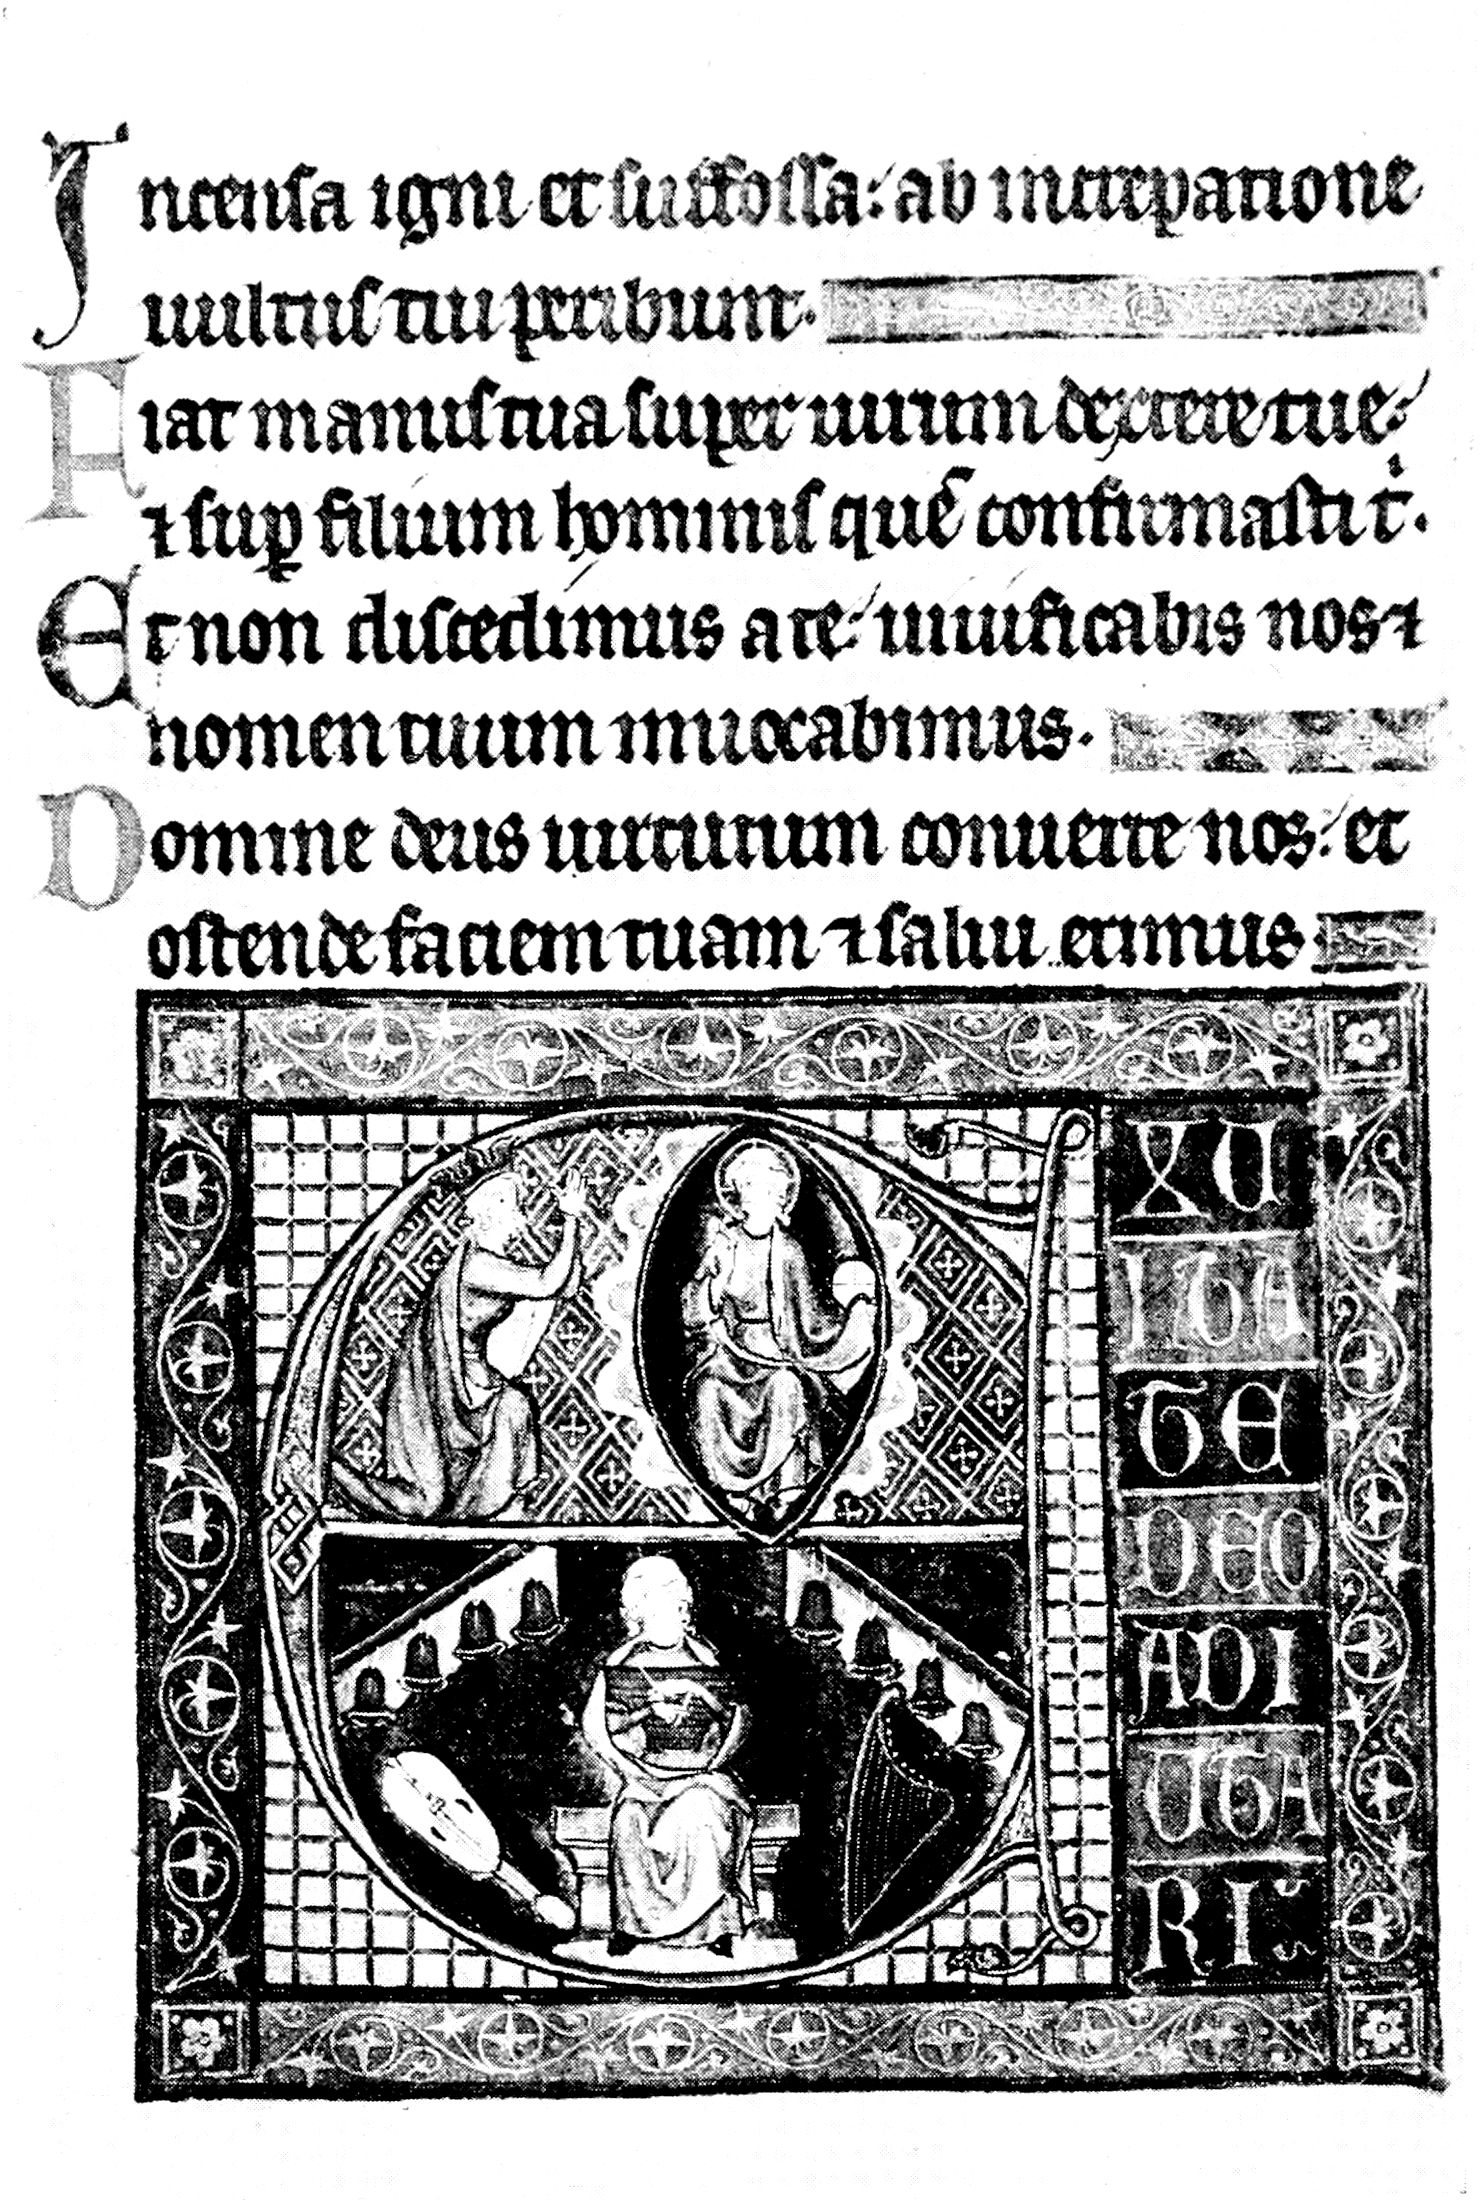 Incensa igni et suffossa: ab increpatione
uultus tui peribunt.
Fiat manus tua super uirum dextere tue:
⁊ sup filium hominis quē confirmasti t̾.
Et non discedimus a te: uiuificabis nos ⁊
nomen tuum inuocabimus.
Domine deus uirtutum conuerte nos: et
ostende faciem tuam ⁊ salui erimus
EXU
LTA
TE
DEO
ADI
UTA
RI